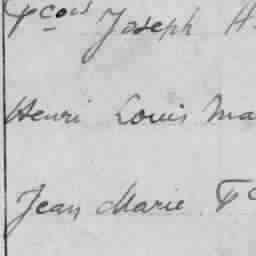 Fcois Joseph H
Henri Louis Ma
Jean Marie Fc